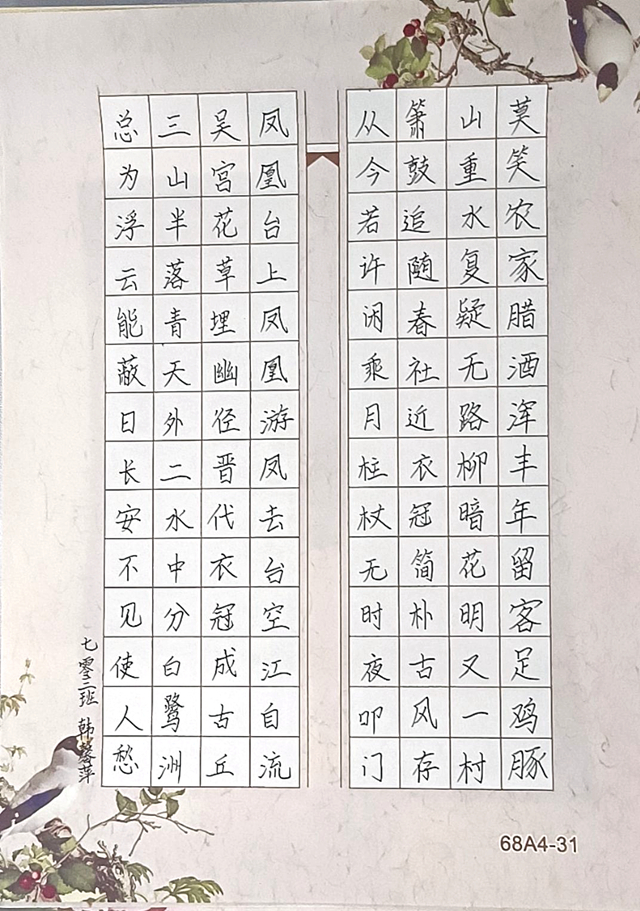 莫笑农家腊酒浑丰年留客足鸡豚
山重水复疑无路柳暗花明又一村
箫鼓追随春社近衣冠简朴古风存
从今若许闲乘月柱杖无时夜叩门
凤凰台上凤凰游凤去台空江自流
吴宫花草埋幽径晋代衣冠成古丘
三山半落青天外二水中分白鹭洲
总为浮云能蔽日长安不见使人愁
七零三班 韩萍
68A4-31